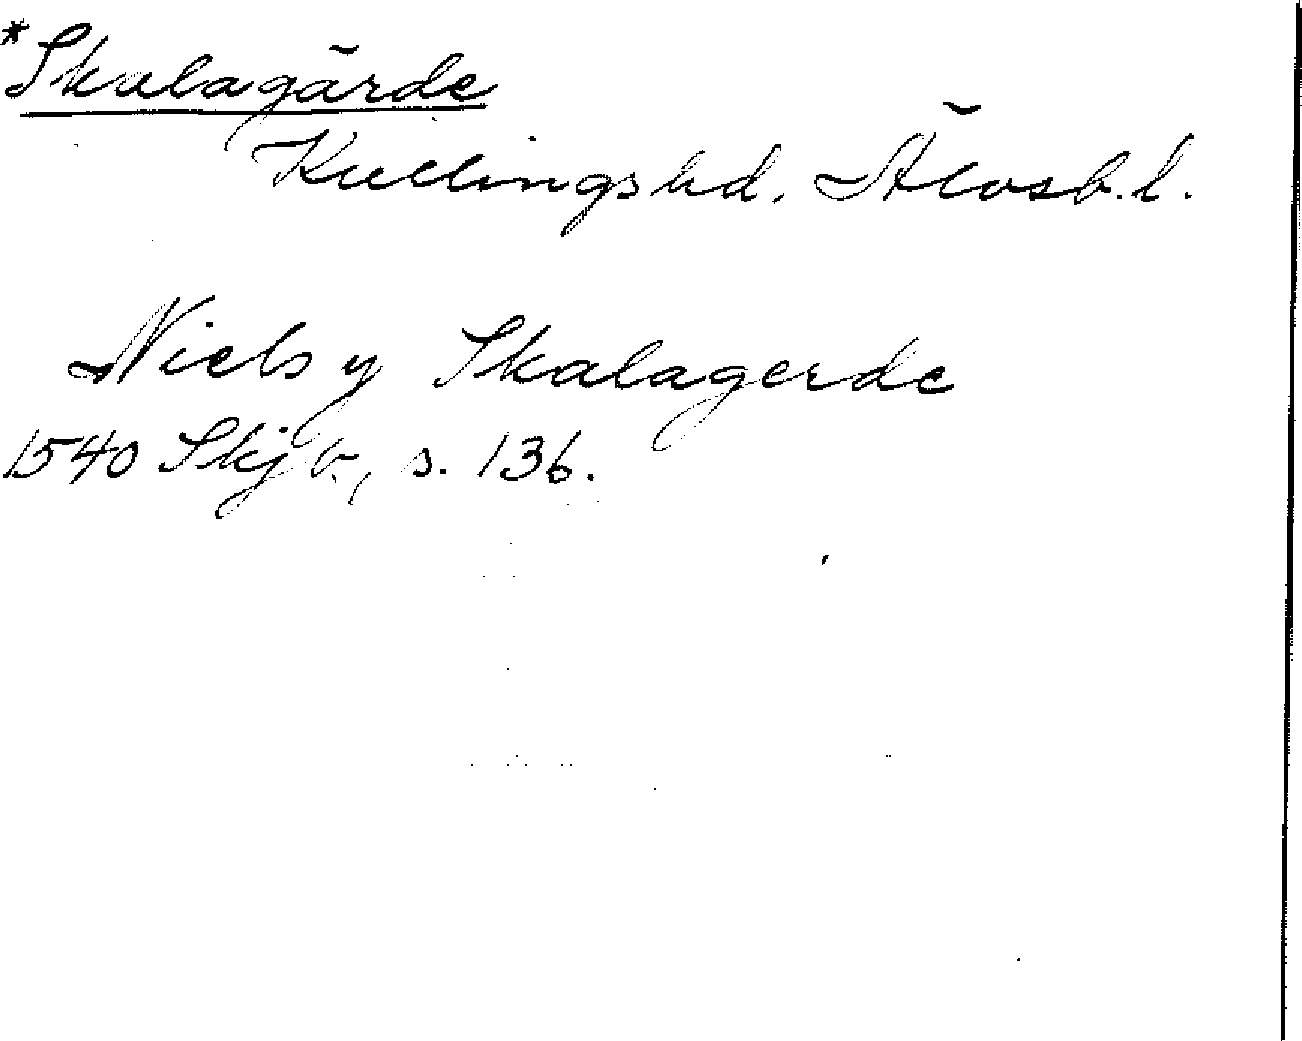 *Skalagärde
Kullings hd. Älvsb. l.
Niels y Skalagerde
1540 Skjb, s. 136.